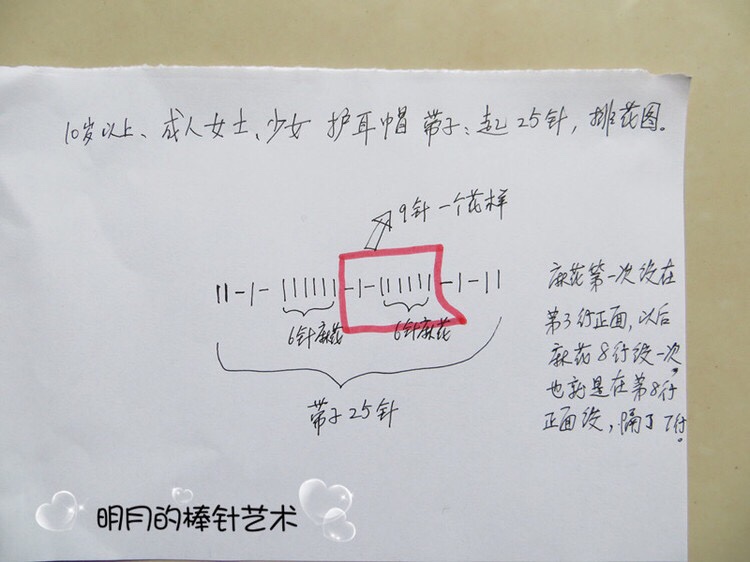 10岁以上、成人女士、少女 护耳帽 带子:起25针,排花图。
9针一个花样
6针麻花
6针麻花
带子25针
麻花第一次设在
第3行正面,以后
麻花8行设一次,
也就是在第8行
正面设,隔了7行。
明月的棒针艺术